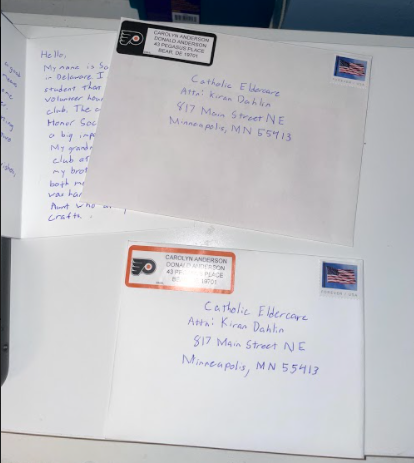 Hello,
My name is
in Delaware. I
student that
volunteer hour
club. The
Honor Soc
a big imp
My grand
club at
my bro
both m
was
Aunt who
crafts.
CAROLYN ANDERSON
DONALD ANDERSON
43 PEGASUS PLACE
BEAR, DE 19701
Catholic Eldercare
Attn: Kiran Dahlin
817 Main Street NE
Minneapolis, MN 55413
CAROLYN ANDERSON
DONALD ANDERSON
43 PLACE
19701
FOREVER USA
Catholic Eldercare
Attn: Kiran Dahlin
817 Main Street NE
Minneapolis, MN 55413